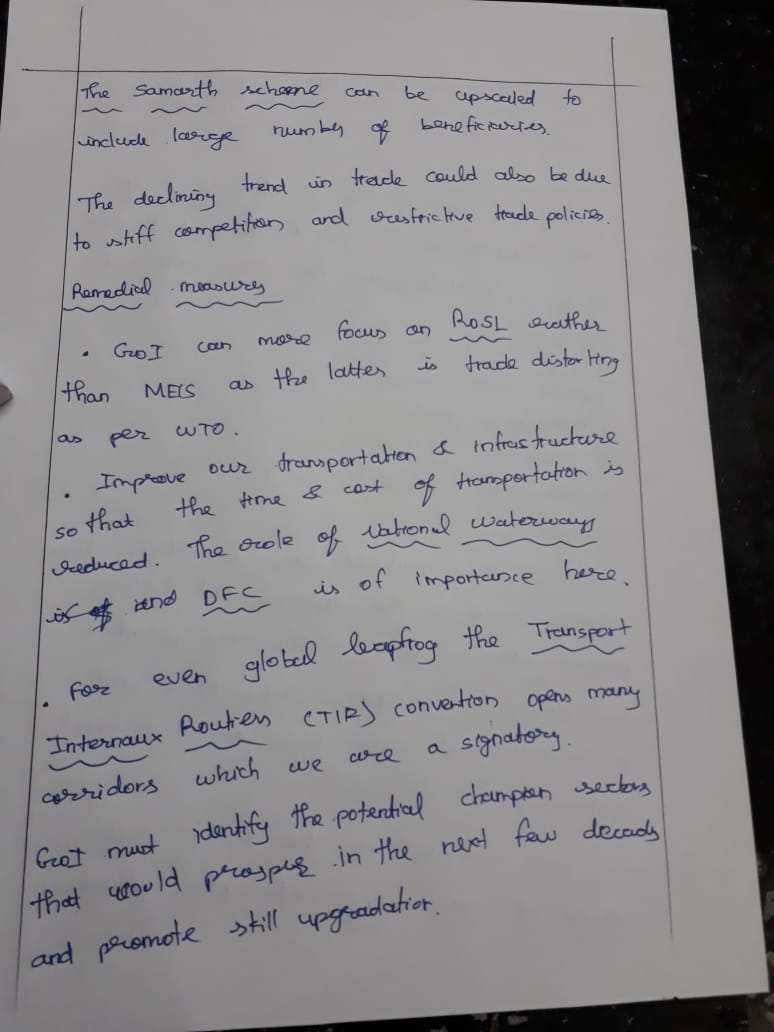 The Samarth scheme can be upscaled to
include large number of beneficiaries.
The declining trend in trade could also be due
to stiff competition and restrictive trade policies.
Remedial measures
• GoI can more focus on RoSL rather
than MEIS as the latter is trade distorting
as per WTO.
• Improve our transportation & infrastructure
so that the time & cost of transportation is
reduced. The role of National Waterways
is of and DFC is of importance here.
• For even global leapfrog the Transport
Internaux Routiers (TIR) convention opens many
corridors which we are a signatory.
GoI must identify the potential champion sectors
that would prosper in the next few decads
and promote still upgradation.